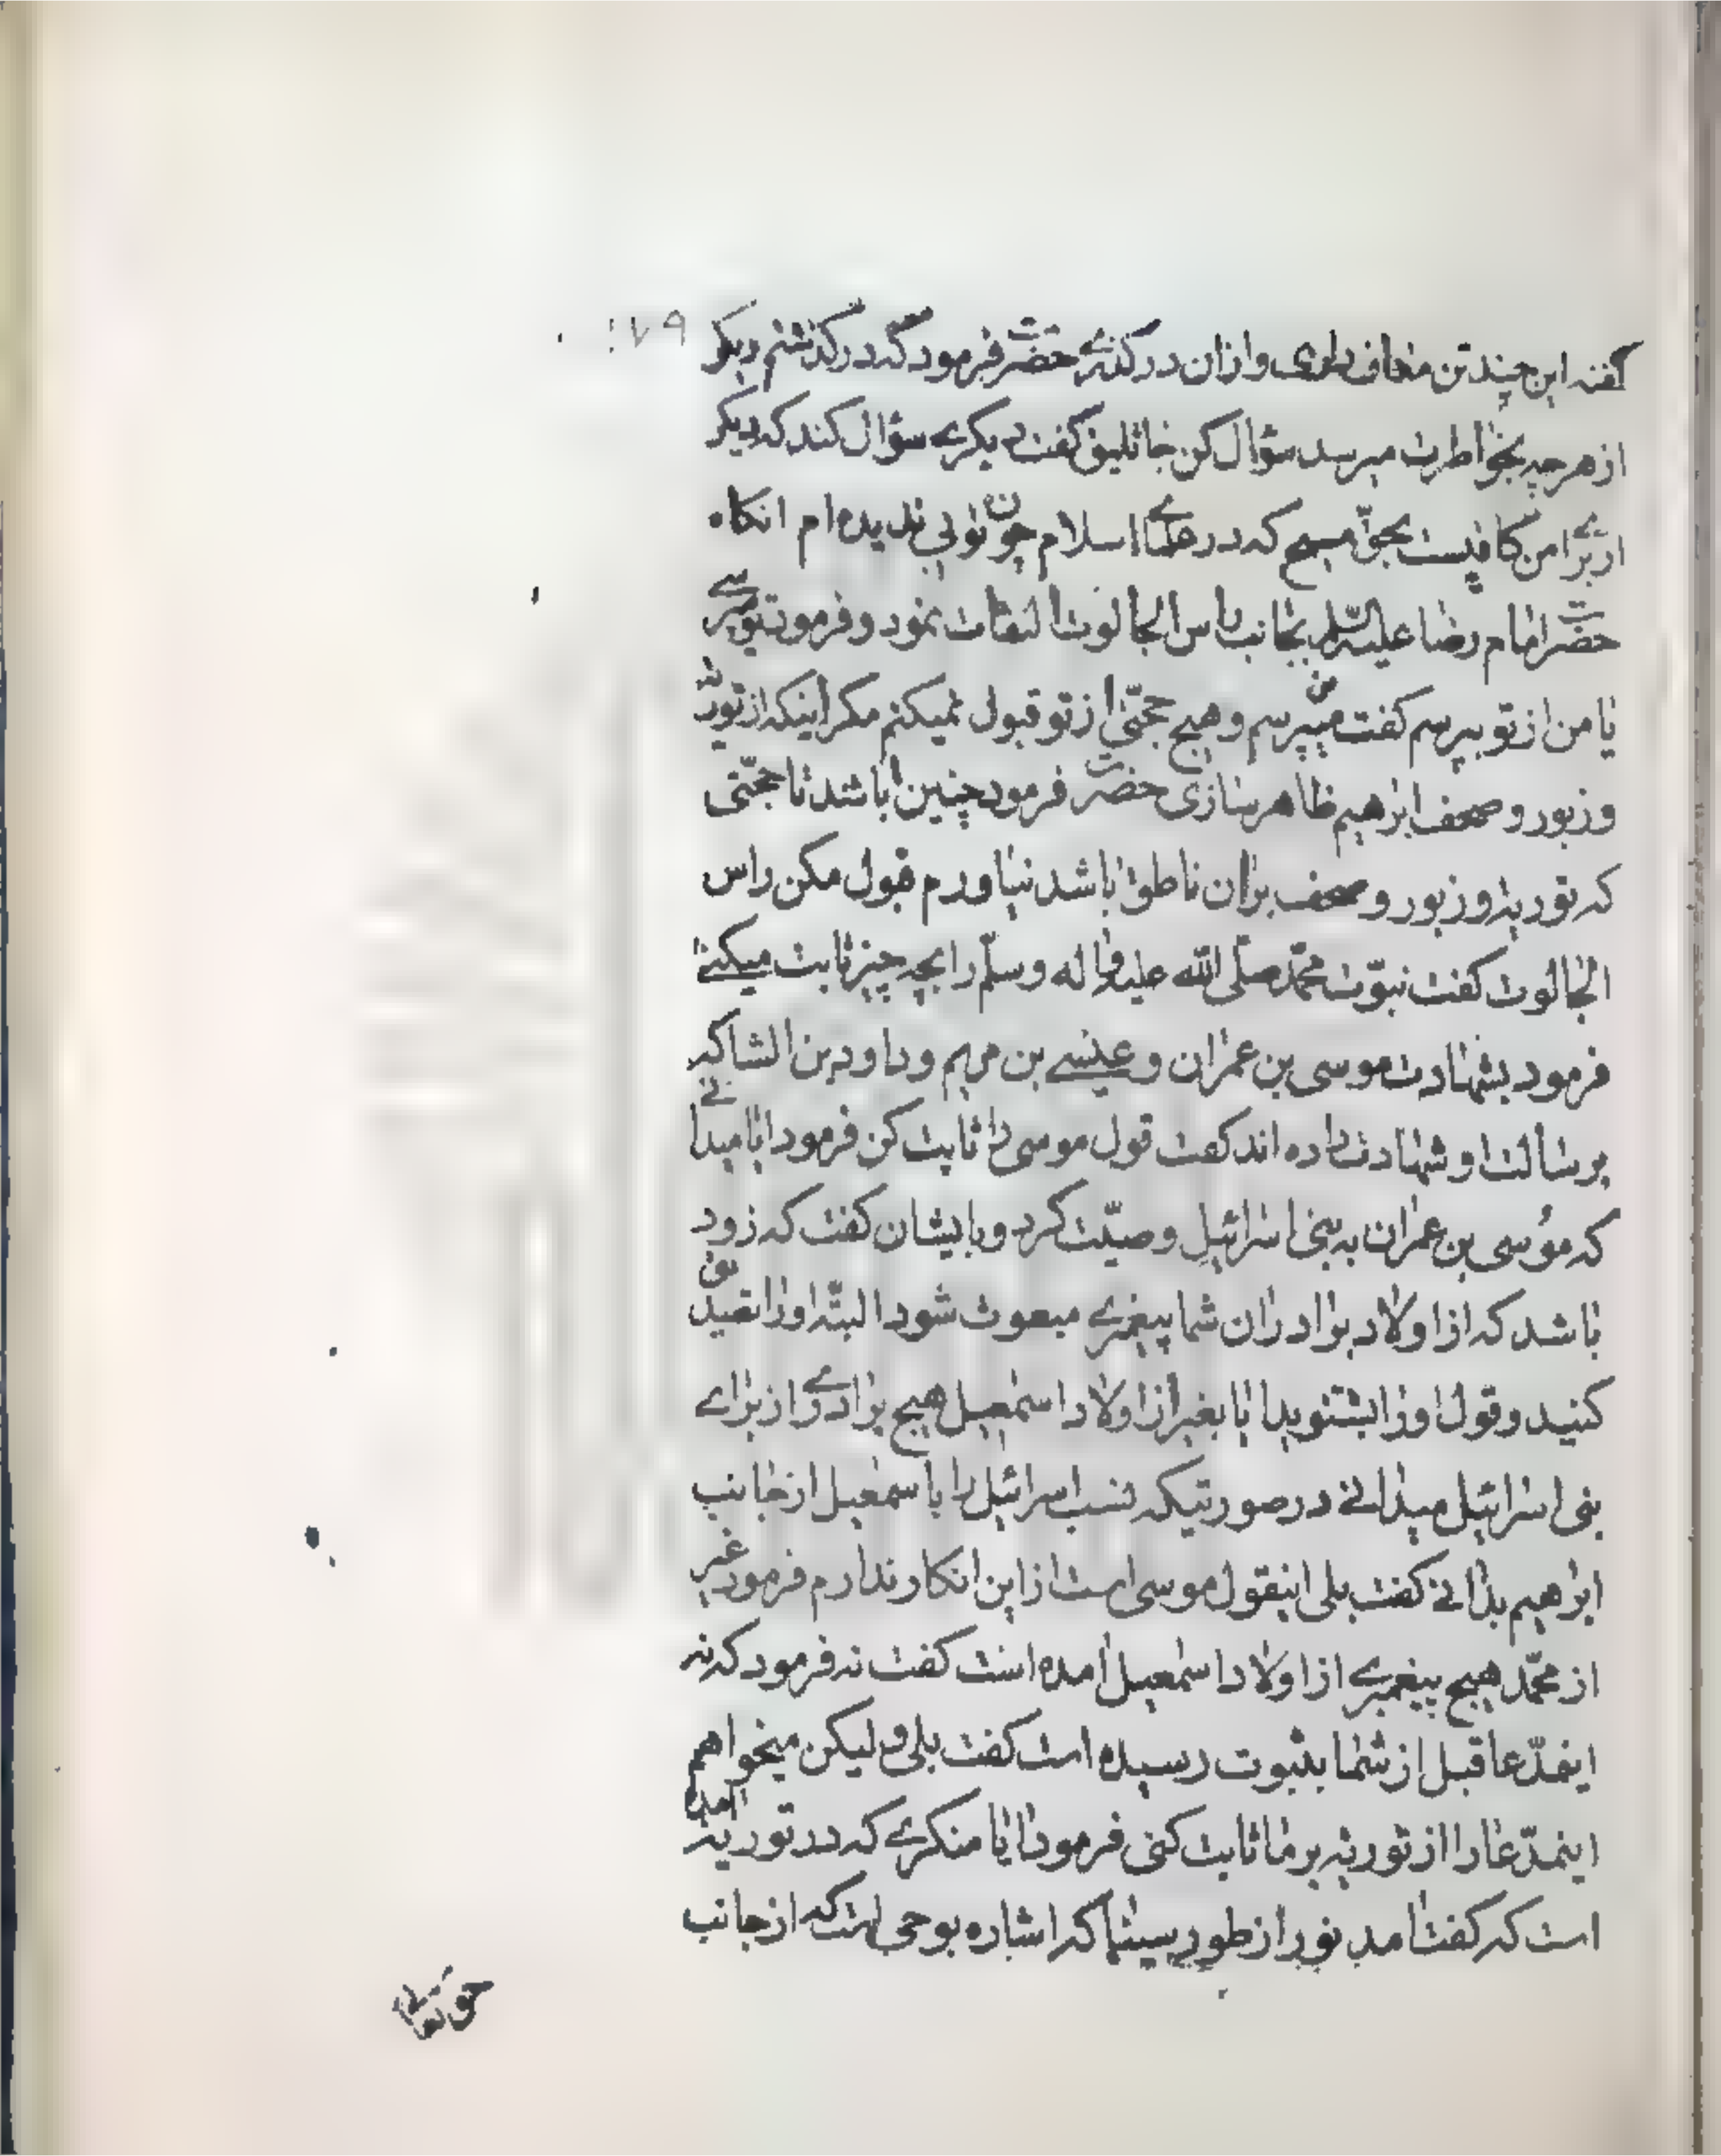 ۱۷۹
گفته این چند تن معاف داری و از آن درگذری حضرت فرمود که درگذشتم دیگر
از هر چه بخواطرت میرسد سؤال کن جاثلیق گفت دیگری سؤال کند که دیگر
از برای من کافیست بحق مسیح که در علمای اسلام چون تویی ندیده‌ام آنگاه
حضرت امام رضا علیه السلام بجانب راس الجالوت التفات نمود و فرمود تو میپرسی
یا من از تو بپرسم گفت من میپرسم و هیچ حجّتی از تو قبول نمیکنم مگر اینکه از توریة
و زبور و صحف ابرهیم ظاهر سازی حضرت فرمود چنین باشد تا حجّتی
که توریة و زبور و صحف بر آن ناطق باشد نیاورم قبول مکن راس
الجالوت گفت نبوّت محمّد صلّی الله علیه و اله و سلّم را بچه چیز ثابت میکنی
فرمود بشهادت موسی بن عمران و عیسی بن مریم و داود بن الشا که
برسالت او شهادت داده اند گفت قول موسی را ثابت کن فرمود ایا میدانی
که موُسی بن عمران به بنی اسرائیل وصیّت کرد و بایشان گفت که زود
باشد که از اولاد برادران شما پیغمبری مبعوث شود البتّه او را تصدیق
کنید و قول او را بشنوید ایا بغیر از اولاد اسمعیل هیچ برادری از برای
بنی اسرائیل میدانی در صورتیکه نسب اسرائیل را با سمعیل از جانب
ابرهیم بدانی گفت بلی اینقول موسی است از این انکار ندارم فرمود غیر
از محمّد هیچ پیغمبری از اولاد اسمعیل آمده است گفت نه فرمود که نه
اینمدّعا قبل از شما بثبوت رسیده است گفت بلی و لیکن میخواهم
اینمدّعا را از توریة بر ما ثابت کنی فرمود ایا منکری که در توریة آمده
است که گفت آمد نور از طور سینا که اشاره بوحی است که از جانب
حق تعالی